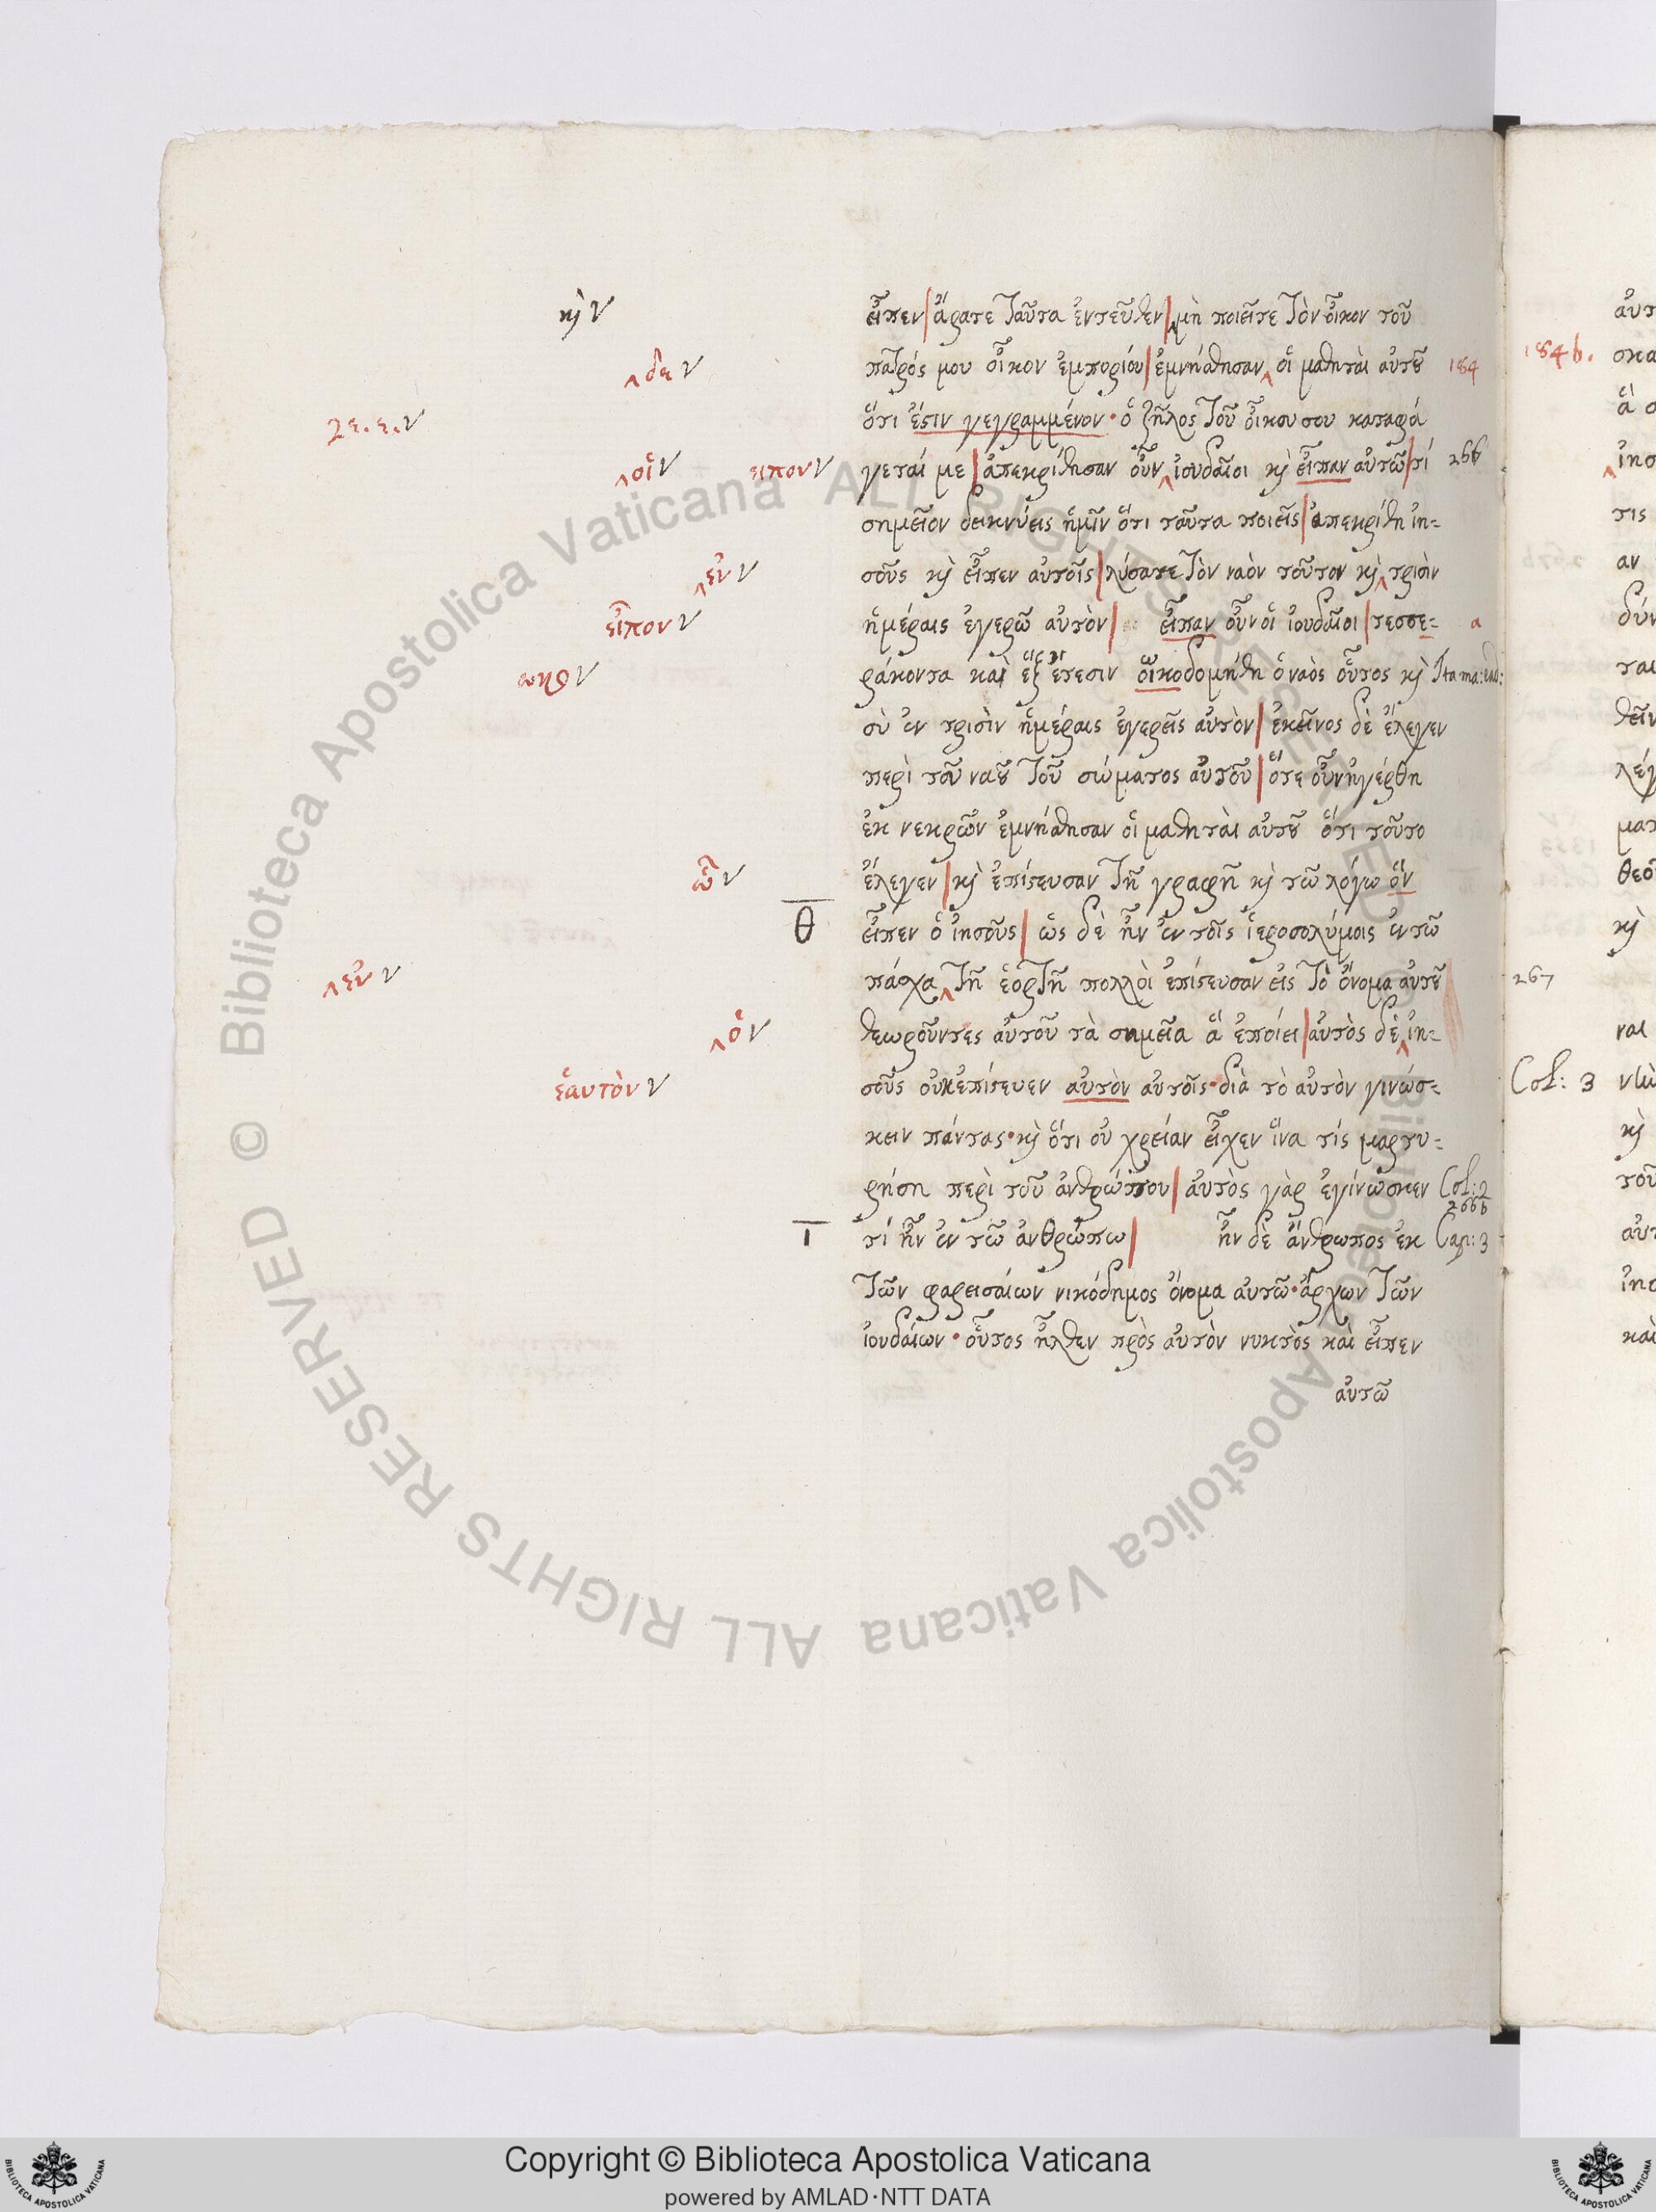 κὶ ν
εἶπεν| ἄρατε ταῦτα ἐντεῦθεν| μὴ ποιεῖτε τὸν οἶκον τοῦ
‸δε ν
πατρός μου οἶκον ἐμπορίου| ἐμνήσθησαν‸ οἱ μαθηταὶ αὐτοῦ 184
ὅτι ἐστιν γεγραμμένον· ὁ ζῆλος τοῦ οἴκου σου καταφά
‸οἱ ν ειπον ν
γεταί με| ἀπεκρίθησαν οὖν‸ ἰουδαῖοι κὶ εἶπαν αὐτῶ| τί 266
σημεῖον δεικνύεις ἡμῖν ὅτι ταῦτα ποιεῖς| ἀπεκρίθη ἰη=
‸ἐν ν
σοῦς κὶ εἶπεν αὐτοῖς| λύσατε τὸν ναὸν τοῦτον κὶ‸ τρισὶν
εἶπον ν
ἡμέραις ἐγερῶ αὐτὸν| εἶπαν οὖν οἱ ἰουδαῖοι| τεσσε= α
ράκοντα καὶ ἓξ ἔτεσιν οἰκοδομήθη ὁ ναὸς οὗτος κὶ
σὺ ἐν τρισὶν ἡμέραις ἐγερεῖς αὐτὸν| ἐκεῖνος δὲ ἔλεγεν
περὶ τοῦ ναοῦ τοῦ σώματος αὐτοῦ| ὅτε οὖν ἠγέρθη
ἐκ νεκρῶν ἐμνήσθησαν οἱ μαθηταὶ αὐτοῦ ὅτι τοῦτο
ὧ ν
ἔλεγεν| κὶ ἐπίστευσαν τῆ γραφῆ κὶ τῶ λόγω ὃν
θ εἶπεν ὁ ἰησοῦς| ὡς δὲ ἦν ἐν τοῖς ἱεροσολύμοις ἐν τῶ
‸ἐν ν
πάσχα‸ τῆ ἑορτῆ πολλοὶ ἐπίστευσαν εἰς τὸ ὄνομα αὐτοῦ 267
‸ὁ ν
θεωροῦντες αὐτοῦ τὰ σημεῖα ἃ ἐποίει| αὐτὸς δὲ‸ ἰη=
ἑαυτὸν ν
σοῦς οὐκ ἐπίστευεν αὐτὸν αὐτοῖς· διὰ τὸ αὐτὸν γινώσ=
κειν πάντας· κὶ ὅτι οὐ χρείαν εἶχεν ἵνα τίς μαρτυ=
ρήση περὶ τοῦ ἀνθρώπου| αὐτὸς γὰρ ἐγίνωσκεν Col: 2
266b
ι τί ἦν ἐν τῶ ἀνθρώπω| ἦν δὲ ἄνθρωπος ἐκ Cap: 3
τῶν φαρεισαίων νικόδημος ὄνομα αὐτῶ· ἄρχων τῶν
ἰουδαίων· οὗτος ἦλθεν πρὸς αὐτὸν νυκτὸς καὶ εἶπεν
αὐτῶ
184 b.
Col: 3
© Biblioteca Apostolica Vaticana ALL RIGHTS RESERVED
© Biblioteca Apostolica Vaticana ALL RIGHTS RESERVED
Copyright © Biblioteca Apostolica Vaticana
powered by AMLAD·NTT DATA